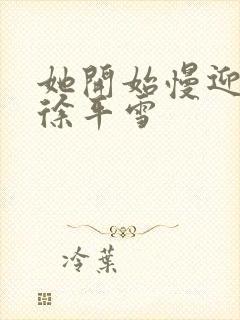 她開始慢迎
徐平雪
冷葉